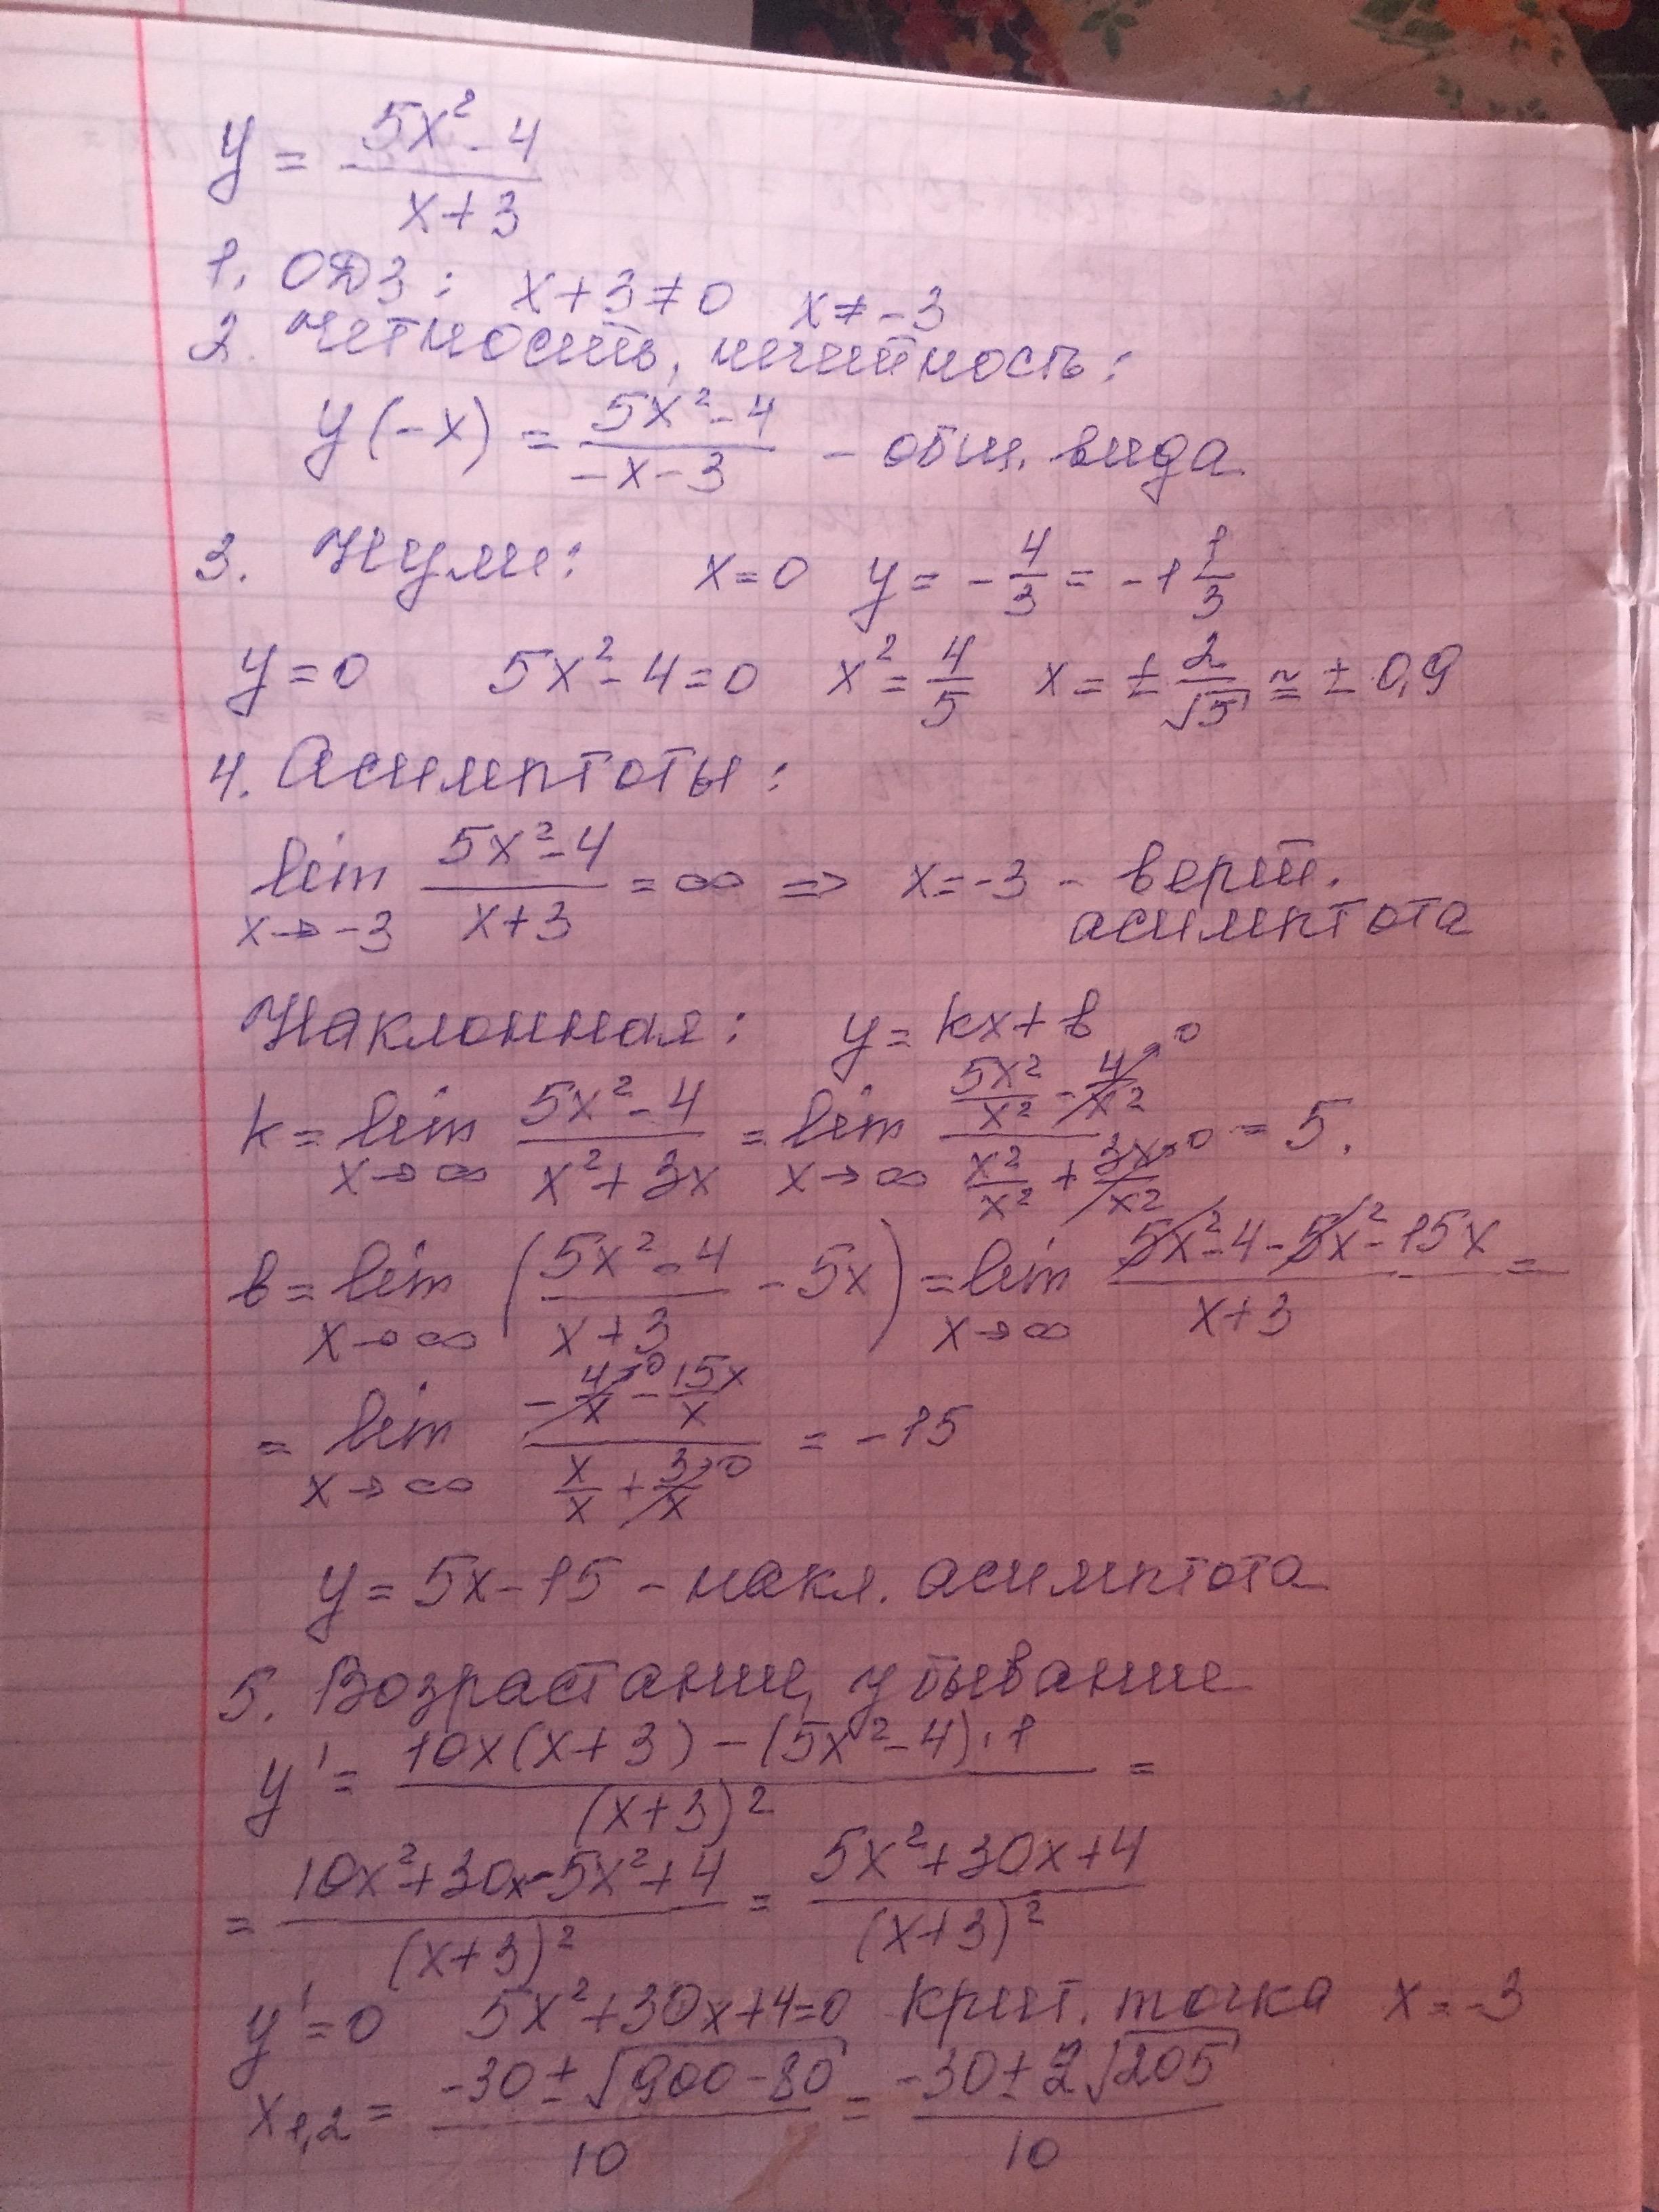 y = (5x² - 4)/(x + 3)
1. ОДЗ: x + 3 ≠ 0 x ≠ -3
2. Четность, нечетность:
y(-x) = (5x² - 4)/(-x - 3) - общ. вида
3. Нули: x = 0 y = -4/3 = -1 1/3
y = 0 5x² - 4 = 0 x² = 4/5 x = ± 2/√5 ≈ ± 0,9
4. Асимптоты:
lim x→-3 (5x² - 4)/(x + 3) = ∞ => x = -3 - верт. асимптота
Наклонная: y = kx + b
k = lim x→∞ (5x² - 4)/(x² + 3x) = lim x→∞ (5x²/x² - 4/x² →0)/(x²/x² + 3x/x² →0) = 5.
b = lim x→∞ ((5x² - 4)/(x + 3) - 5x) = lim x→∞ (5x² - 4 - 5x² - 15x)/(x + 3) =
= lim x→∞ (-4/x →0 - 15x/x)/(x/x + 3/x →0) = -15
y = 5x - 15 - накл. асимптота
5. Возрастание, убывание
y' = (10x(x + 3) - (5x² - 4)·1)/(x + 3)² =
= (10x² + 30x - 5x² + 4)/(x + 3)² = (5x² + 30x + 4)/(x + 3)²
y' = 0 5x² + 30x + 4 = 0 крит. точка x = -3
x1,2 = (-30 ± √(900 - 80))/10 = (-30 ± 2√205)/10